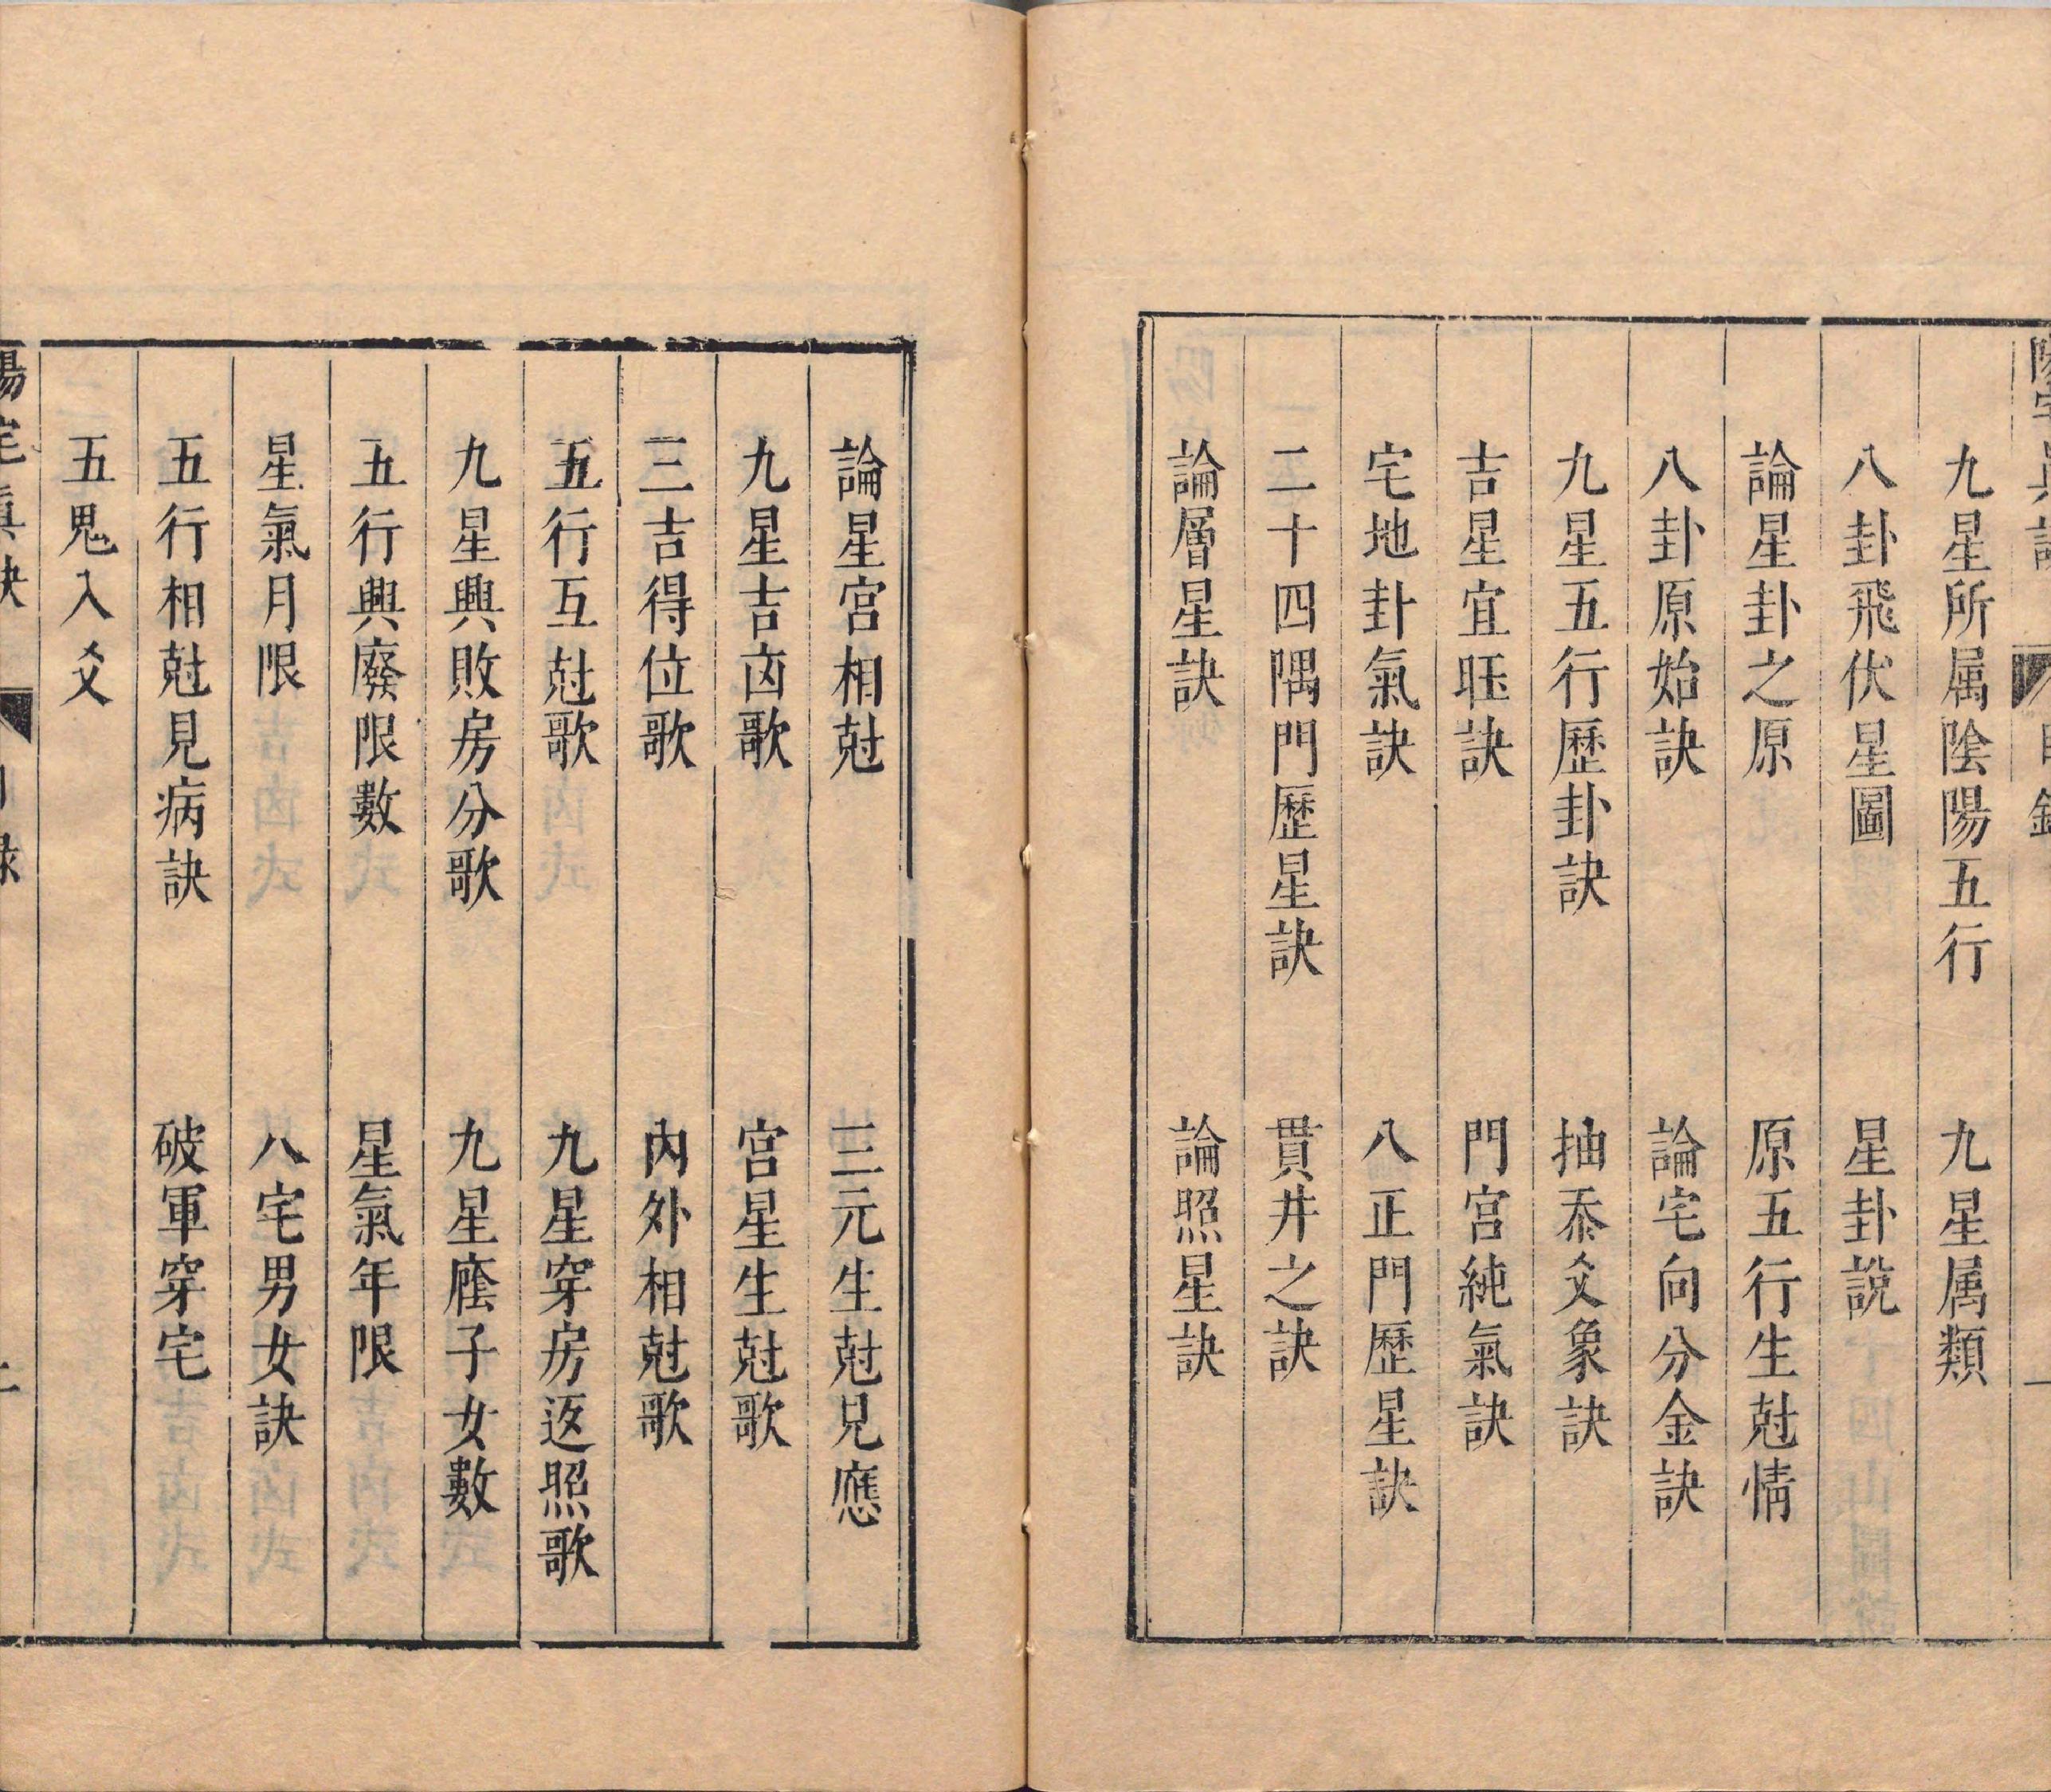 九星所属陰陽五行　九星属類
八卦飛伏星圖　星卦說
論星卦之原　原五行生尅情
八卦原始訣　論宅向分金訣
九星五行歷卦訣　抽爻象訣
吉星宜旺訣　門宮純氣訣
宅地卦氣訣　八正門歷星訣
二十四隅門歷星訣　貫井之訣
論層星訣　論照星訣
論星宮相尅　三元生尅見應
九星吉㐫歌　宮星生尅歌
三吉得位歌　內外相尅歌
五行互尅歌　九星穿房返照歌
九星興敗房分歌　九星廕子女數
五行興廢限數　星氣年限
星氣月限　八宅男女訣
五行相尅見病訣　破軍穿宅
五鬼入爻